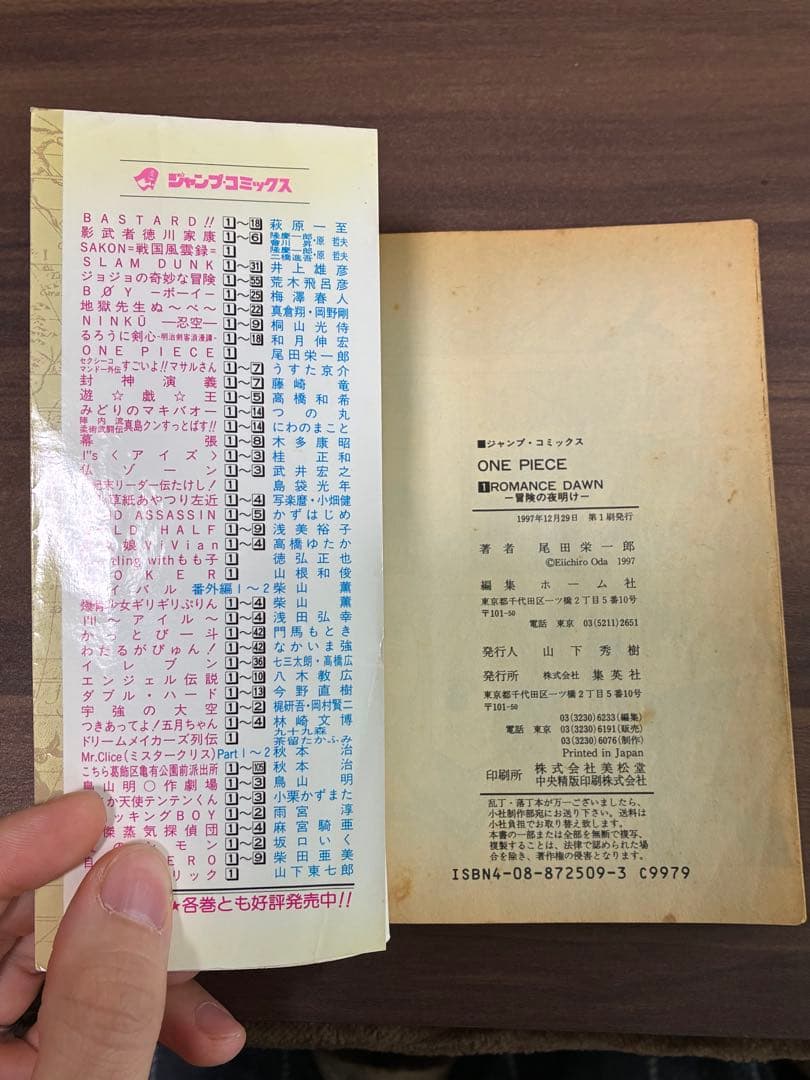 ジャンプ・コミックス
BASTARD!! 1〜18 萩原一至
影武者徳川家康 1〜6 隆慶一郎 會川昇・原哲夫
SAKON=戦国風雲録= 1 隆慶一郎 二橋進吾・原哲夫
SLAM DUNK 1〜31 井上雄彦
ジョジョの奇妙な冒険 1〜55 荒木飛呂彦
BØY —ボーイ— 1〜25 梅澤春人
地獄先生ぬ〜べ〜 1〜22 真倉翔・岡野剛
NINKŪ —忍空— 1〜9 桐山光侍
るろうに剣心-明治剣客浪漫譚- 1〜18 和月伸宏
ONE PIECE 1 尾田栄一郎
セクシーコマンドー外伝 すごいよ!!マサルさん 1〜7 うすた京介
封神演義 1〜7 藤崎竜
遊☆戯☆王 1〜5 高橋和希
みどりのマキバオー 1〜14 つの丸
陣内流柔術武闘伝 真島クンすっとばす!! 1〜14 にわのまこと
幕張 1〜8 木多康昭
I"s〈アイズ〉 1〜3 桂正和
仏ゾーン 1〜3 武井宏之
紀末リーダー伝たけし! 1 島袋光年
草紙あやつり左近 1〜4 写楽麿・小畑健
D ASSASSIN 1〜5 かずはじめ
LD HALF 1〜9 浅美裕子
娘VVian 1〜4 高橋ゆたか
ling withもも子 1 徳弘正也
OKER 1 山根和俊
イバル 番外編1〜2 柴山薫
爆骨少女ギリギリぷりん 1〜4 柴山薫
I'll 〜アイル〜 1〜4 浅田弘幸
かっとび一斗 1〜42 門馬もとき
わたるがぴゅん! 1〜42 なかいま強
イレブン 1〜36 七三太朗・高橋広
エンジェル伝説 1〜10 八木教広
ダブル・ハード 1〜13 今野直樹
宇強の大空 1〜2 梶研吾・岡村賢二
つきあってよ!五月ちゃん 1〜4 林崎文博
ドリームメイカーズ列伝 1 九十九森 茶留たかふみ
Mr.Clice(ミスタークリス) Part1〜2 秋本治
こちら葛飾区亀有公園前派出所 1〜105 秋本治
鳥山明○作劇場 1〜3 鳥山明
か天使テンテンくん 1〜3 小栗かずまた
ッキングBOY 1〜2 雨宮淳
傑蒸気探偵団 1〜4 麻宮騎亜
モン 1〜2 坂口いく
自 ERO 1〜9 柴田亜美
リック 1 山下東七郎
★各巻とも好評発売中!!
■ジャンプ・コミックス
ONE PIECE
1 ROMANCE DAWN
—冒険の夜明け—
1997年12月29日 第1刷発行
著者 尾田栄一郎
©Eiichiro Oda 1997
編集 ホーム社
東京都千代田区一ツ橋2丁目5番10号
〒101-50
電話 東京 03(5211)2651
発行人 山下秀樹
発行所 株式会社 集英社
東京都千代田区一ツ橋2丁目5番10号
〒101-50
03(3230)6233(編集)
電話 東京 03(3230)6191(販売)
03(3230)6076(制作)
Printed in Japan
印刷所 株式会社美松堂
中央精版印刷株式会社
乱丁・落丁本が万一ございましたら、
小社制作部宛にお送り下さい。送料は
小社負担でお取り替え致します。
本書の一部または全部を無断で複写、
複製することは、法律で認められた場
合を除き、著作権の侵害となります。
ISBN4-08-872509-3 C9979